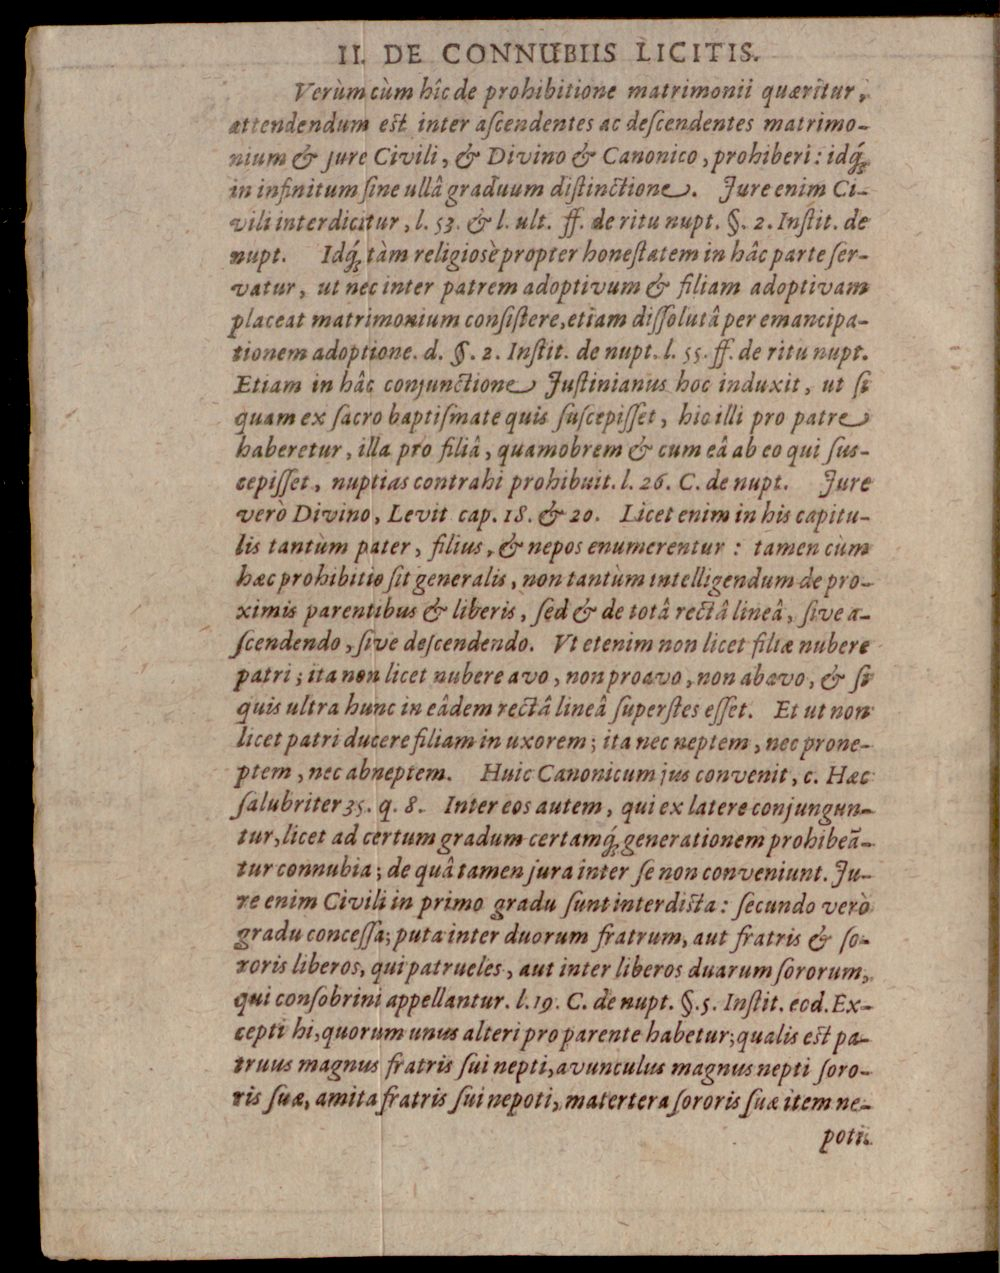 II. DE CONNUBIIS LICITIS.
Verùm cùm hîc de prohibitione matrimonii quæritur,
attendendum est inter aſcendentes ac deſcendentes matrimo-
nium & jure Civili, & Divino & Canonico, prohiberi: idq́;
in infinitum ſine ullâ graduum diſtinctione. Jure enim Ci-
vili interdicitur, l. 53. & l. ult. ff. de ritu nupt. §. 2. Inſtit. de
nupt. Idq́; tàm religiosè propter honeſtatem in hâc parte ſer-
vatur, ut nec inter patrem adoptivum & filiam adoptivam
placeat matrimonium conſiſtere, etiam diſſolutâ per emancipa-
tionem adoptione. d. §. 2. Inſtit. de nupt. l. 55. ff. de ritu nupt.
Etiam in hâc conjunctione Juſtinianus hoc induxit, ut ſi
quam ex ſacro baptiſmate quis ſuſcepiſſet, hic illi pro patre
haberetur, illa pro filiâ, quamobrem & cum eâ ab eo qui ſus-
cepiſſet, nuptias contrahi prohibuit. l. 26. C. de nupt. Jure
verò Divino, Levit cap. 18. & 20. Licet enim in his capitu-
lis tantùm pater, filius, & nepos enumerentur: tamen cùm
hæc prohibitio ſit generalis, non tantùm intelligendum de pro-
ximis parentibus & liberis, ſed & de totâ rectâ lineâ, ſive a-
ſcendendo, ſive deſcendendo. Vt etenim non licet filiæ nubere
patri; ita non licet nubere avo, non proavo, non abavo, & ſi
quis ultra hunc in eâdem rectâ lineâ ſuperſtes eſſet. Et ut non
licet patri ducere filiam in uxorem; ita nec neptem, nec prone-
ptem, nec abneptem. Huic Canonicum jus convenit, c. Hæc
ſalubriter 35. q. 8. Inter eos autem, qui ex latere conjungun-
tur, licet ad certum gradum certamq́; generationem prohibeã-
tur connubia; de quâ tamen jura inter ſe non conveniunt. Ju-
re enim Civili in primo gradu ſunt interdicta: ſecundo verò
gradu conceſſa; puta inter duorum fratrum, aut fratris & ſo-
roris liberos, qui patrueles, aut inter liberos duarum ſororum,
qui conſobrini appellantur. l. 19. C. de nupt. §. 5. Inſtit. eod. Ex-
cepti hi, quorum unus alteri pro parente habetur; qualis est pa-
truus magnus fratris ſui nepti, avunculus magnus nepti ſoro-
ris ſuæ, amita fratris ſui nepoti, matertera ſororis ſuæ item ne-
poti.